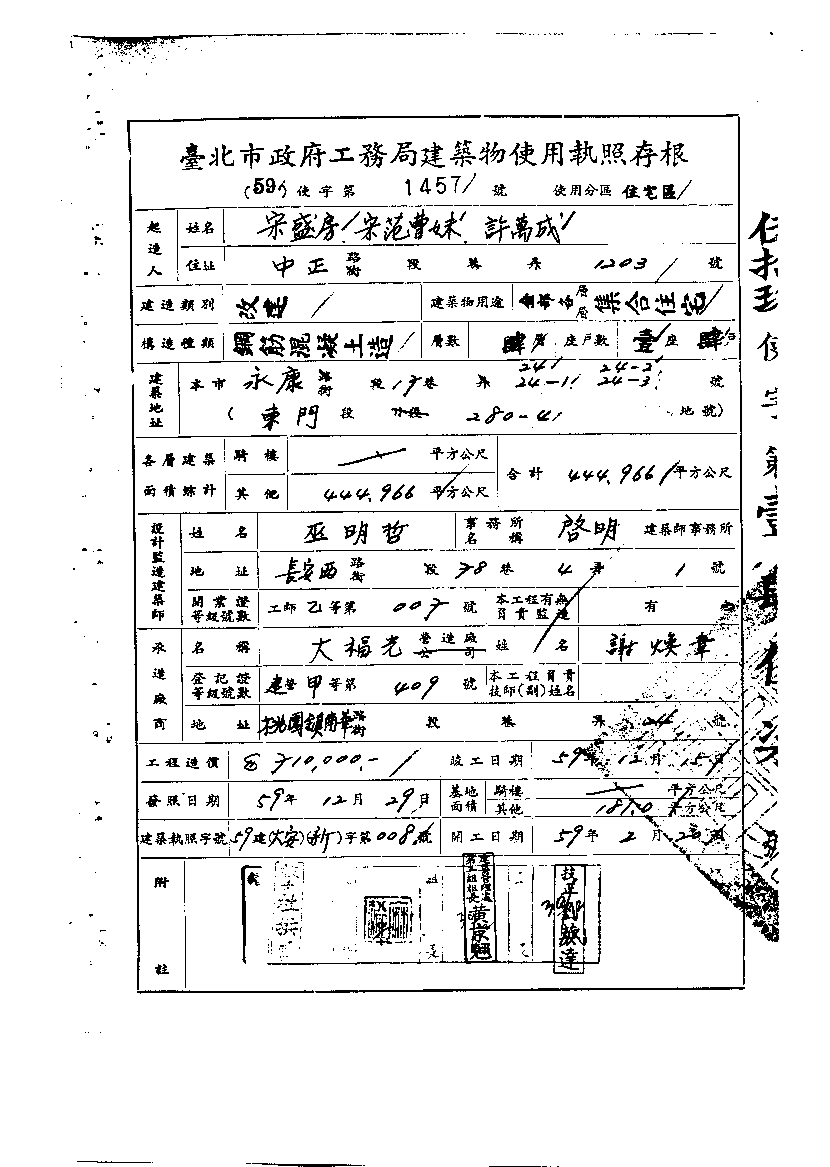 臺北市政府工務局建築物使用執照存根
(59)使字第 1457 號 使用分區 住宅區
起造人 姓名 宋盛房 宋范曹妹 許萬成
住址 中正路街 段 巷 弄 1203 號
建造類別 改建 建築物用途 集合住宅
構造種類 鋼筋混凝土造 層數 肆層 座戶數 壹座 肆戶
24 24-2
建築地址 本市 永康路街 段 17巷 弄 24-1 24-3 號
(東門段 小段 280-4 地號)
各層建築面積綜計 騎樓 平方公尺 合計 444.966 平方公尺
其他 444.966 平方公尺
設計監造建築師 姓名 巫明哲 事務所名稱 啓明 建築師事務所
地址 長安西路街 段 78巷 4弄 1號
開業證等級號數 工師乙等第 007 號 本工程有無負責監造 有
承造廠商 名稱 大福光 營造廠公司 姓名 謝煥章
登記證等級號數 建營甲等第 409 號 本工程負責技師(副)姓名
地址 桃園鎮南華路街 段 巷 弄 24 號
工程造價 710,000.- 竣工日期 59年12月15日
發照日期 59年12月29日 基地面積 騎樓 平方公尺
其他 181.0 平方公尺
建築執照字號 59建(大安)(新)字第008號 開工日期 59年2月 日
附註
黃景魁
技正
使字第壹